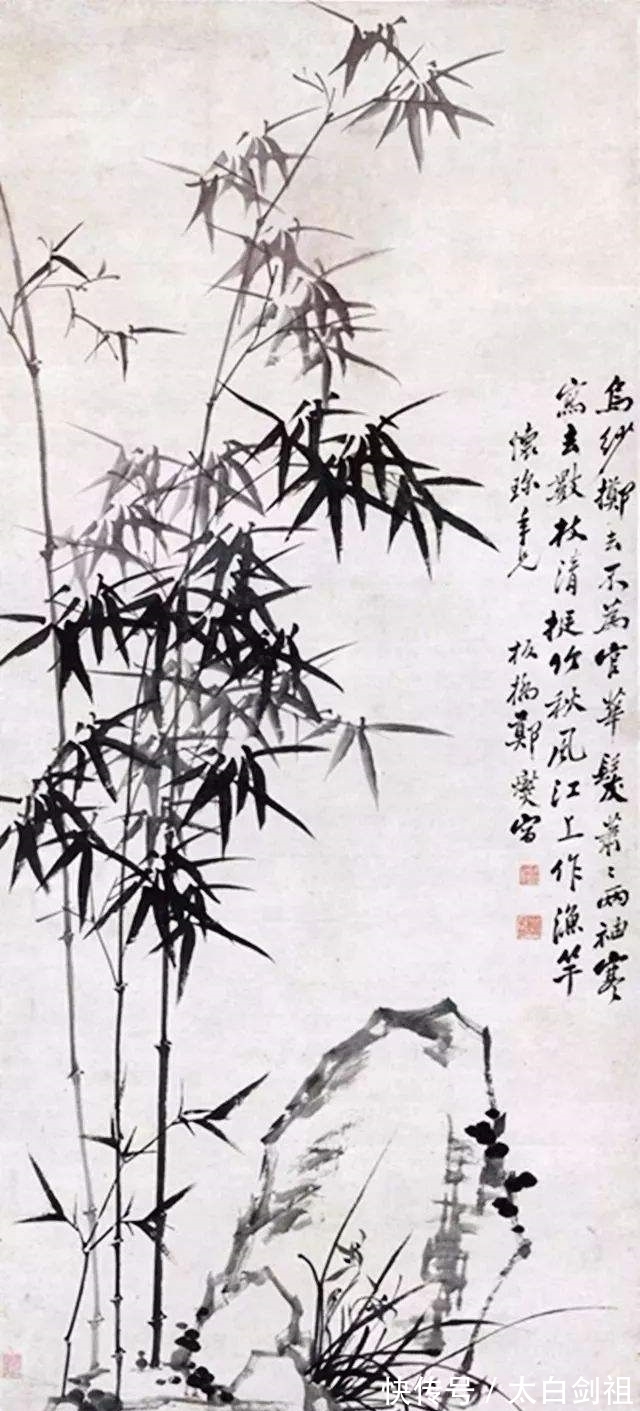 烏紗擲去不為官華髮蕭〻兩袖寒
寫去數枝清挺竹秋風江上作漁竿
懷珎年兄
板橋鄭燮寫
快传号 / 太白剑祖